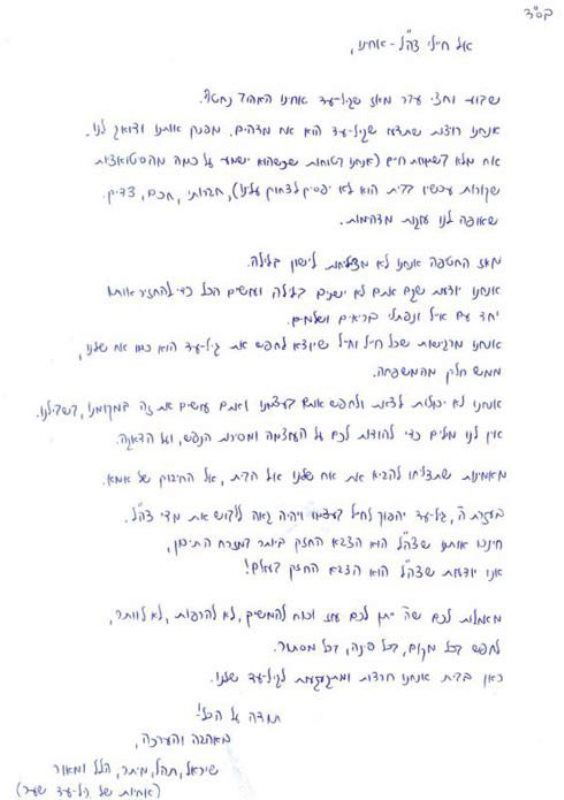 בס"ד
אל חיילי צה"ל - אחינו,
שבוע וחצי עבר מאז שגיל-עד אחינו האהוב נחטף.
אנחנו רוצות שתדעו שגיל-עד הוא אח מדהים. מפנק אותנו ודואג לנו.
אח מלא בשמחת חיים (אנחנו בטוחות שכשהוא ישמע על כמה מהסיטואציות
שקורות עכשיו בבית הוא לא יפסיק לצחוק עלינו), חברותי, חכם, צדיק.
שאופה לנו עוגות מדהימות.
מאז החטיפה אנחנו לא מצליחות לישון בלילה.
אנחנו יודעות שגם אתם לא ישנים בלילה ועושים הכל כדי להחזיר אותו
יחד עם אייל ונפתלי בריאים ושלמים.
אנחנו מרגישות שכל חייל וחייל שיוצא לחפש את גיל-עד הוא כמו אח שלנו,
ממש חלק מהמשפחה.
אנחנו לא יכולות לצאת ולחפש אותו בעצמנו ואתם עושים את זה במקומנו, בשבילנו.
אין לנו מלים כדי להודות לכם על העוצמה ומסירות הנפש, ועל הדאגה.
מאמינות שתצליחו להביא את אח שלנו אל הבית, אל החיבוק של אמא.
בעזרת ה', גיל-עד יהפוך לחייל בעצמו ויהיה גאה ללבוש את מדי צה"ל.
חינכו אותנו שצה"ל הוא הצבא החזק ביותר במזרח התיכון,
אנו יודעות שצה"ל הוא הצבא החזק בעולם!
מאחלות לכם שה' יתן לכם עוז וכוח להמשיך, לא להרפות, לא לוותר,
לחפש בכל מקום, בכל פינה, בכל מסתור.
כאן בבית אנחנו חרדות ומתגעגעות לגיל-עד שלנו.
תודה על הכל!
באהבה והערכה,
שיראל, תהל, מיתר, הלל ומאור
(אחיות של גיל-עד שער)